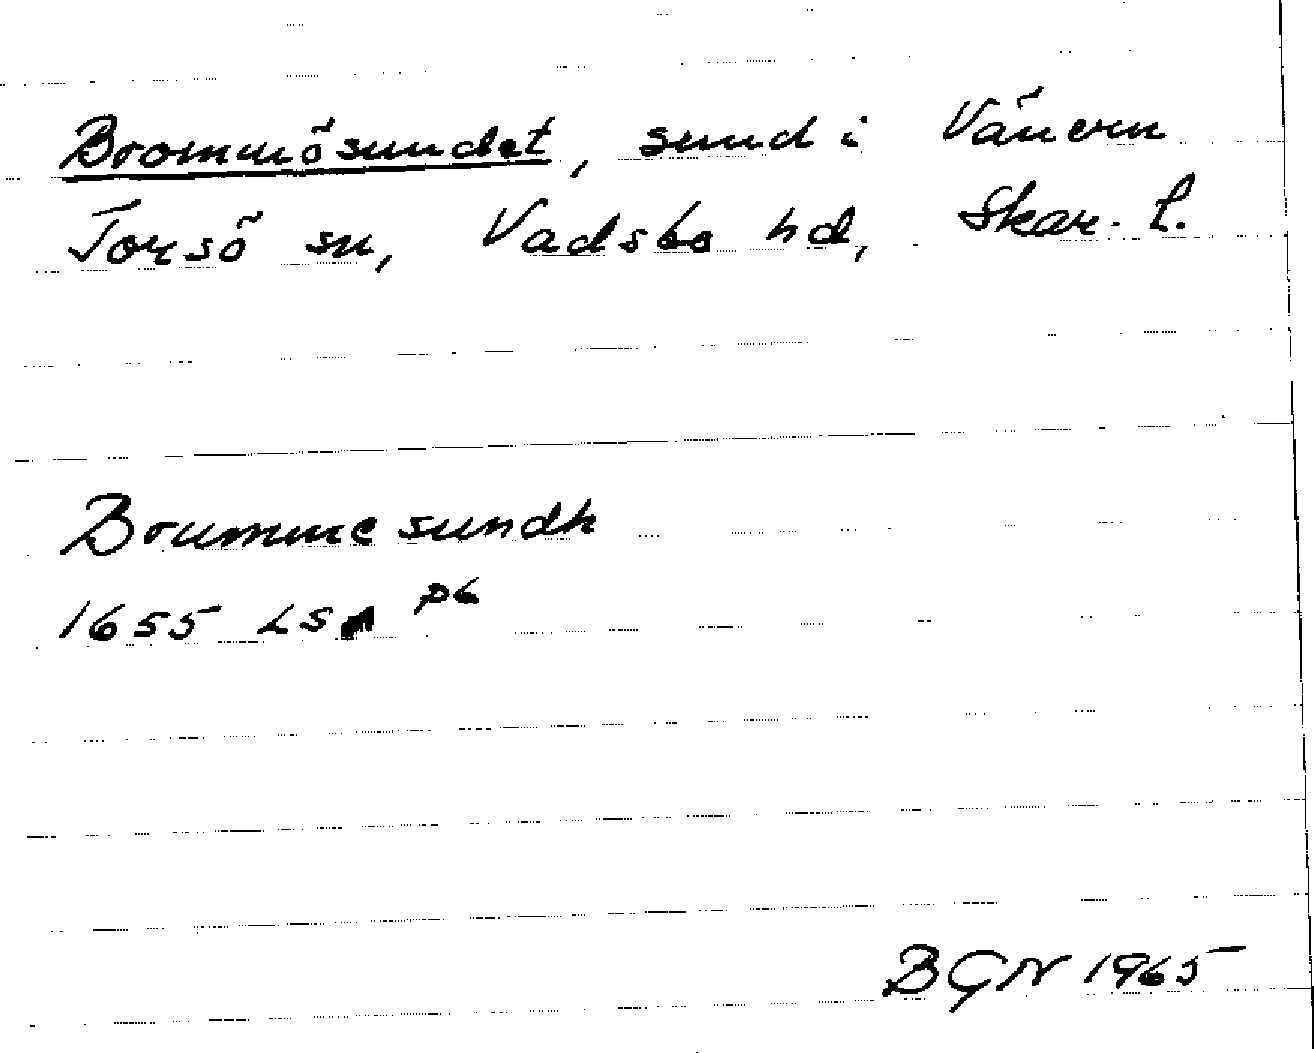 Brommösundet, sund i Vänern
Torsö sn, Vadsbo hd, Skar. l.
Brumme sundh
1655 LSA p6
BGN 1965